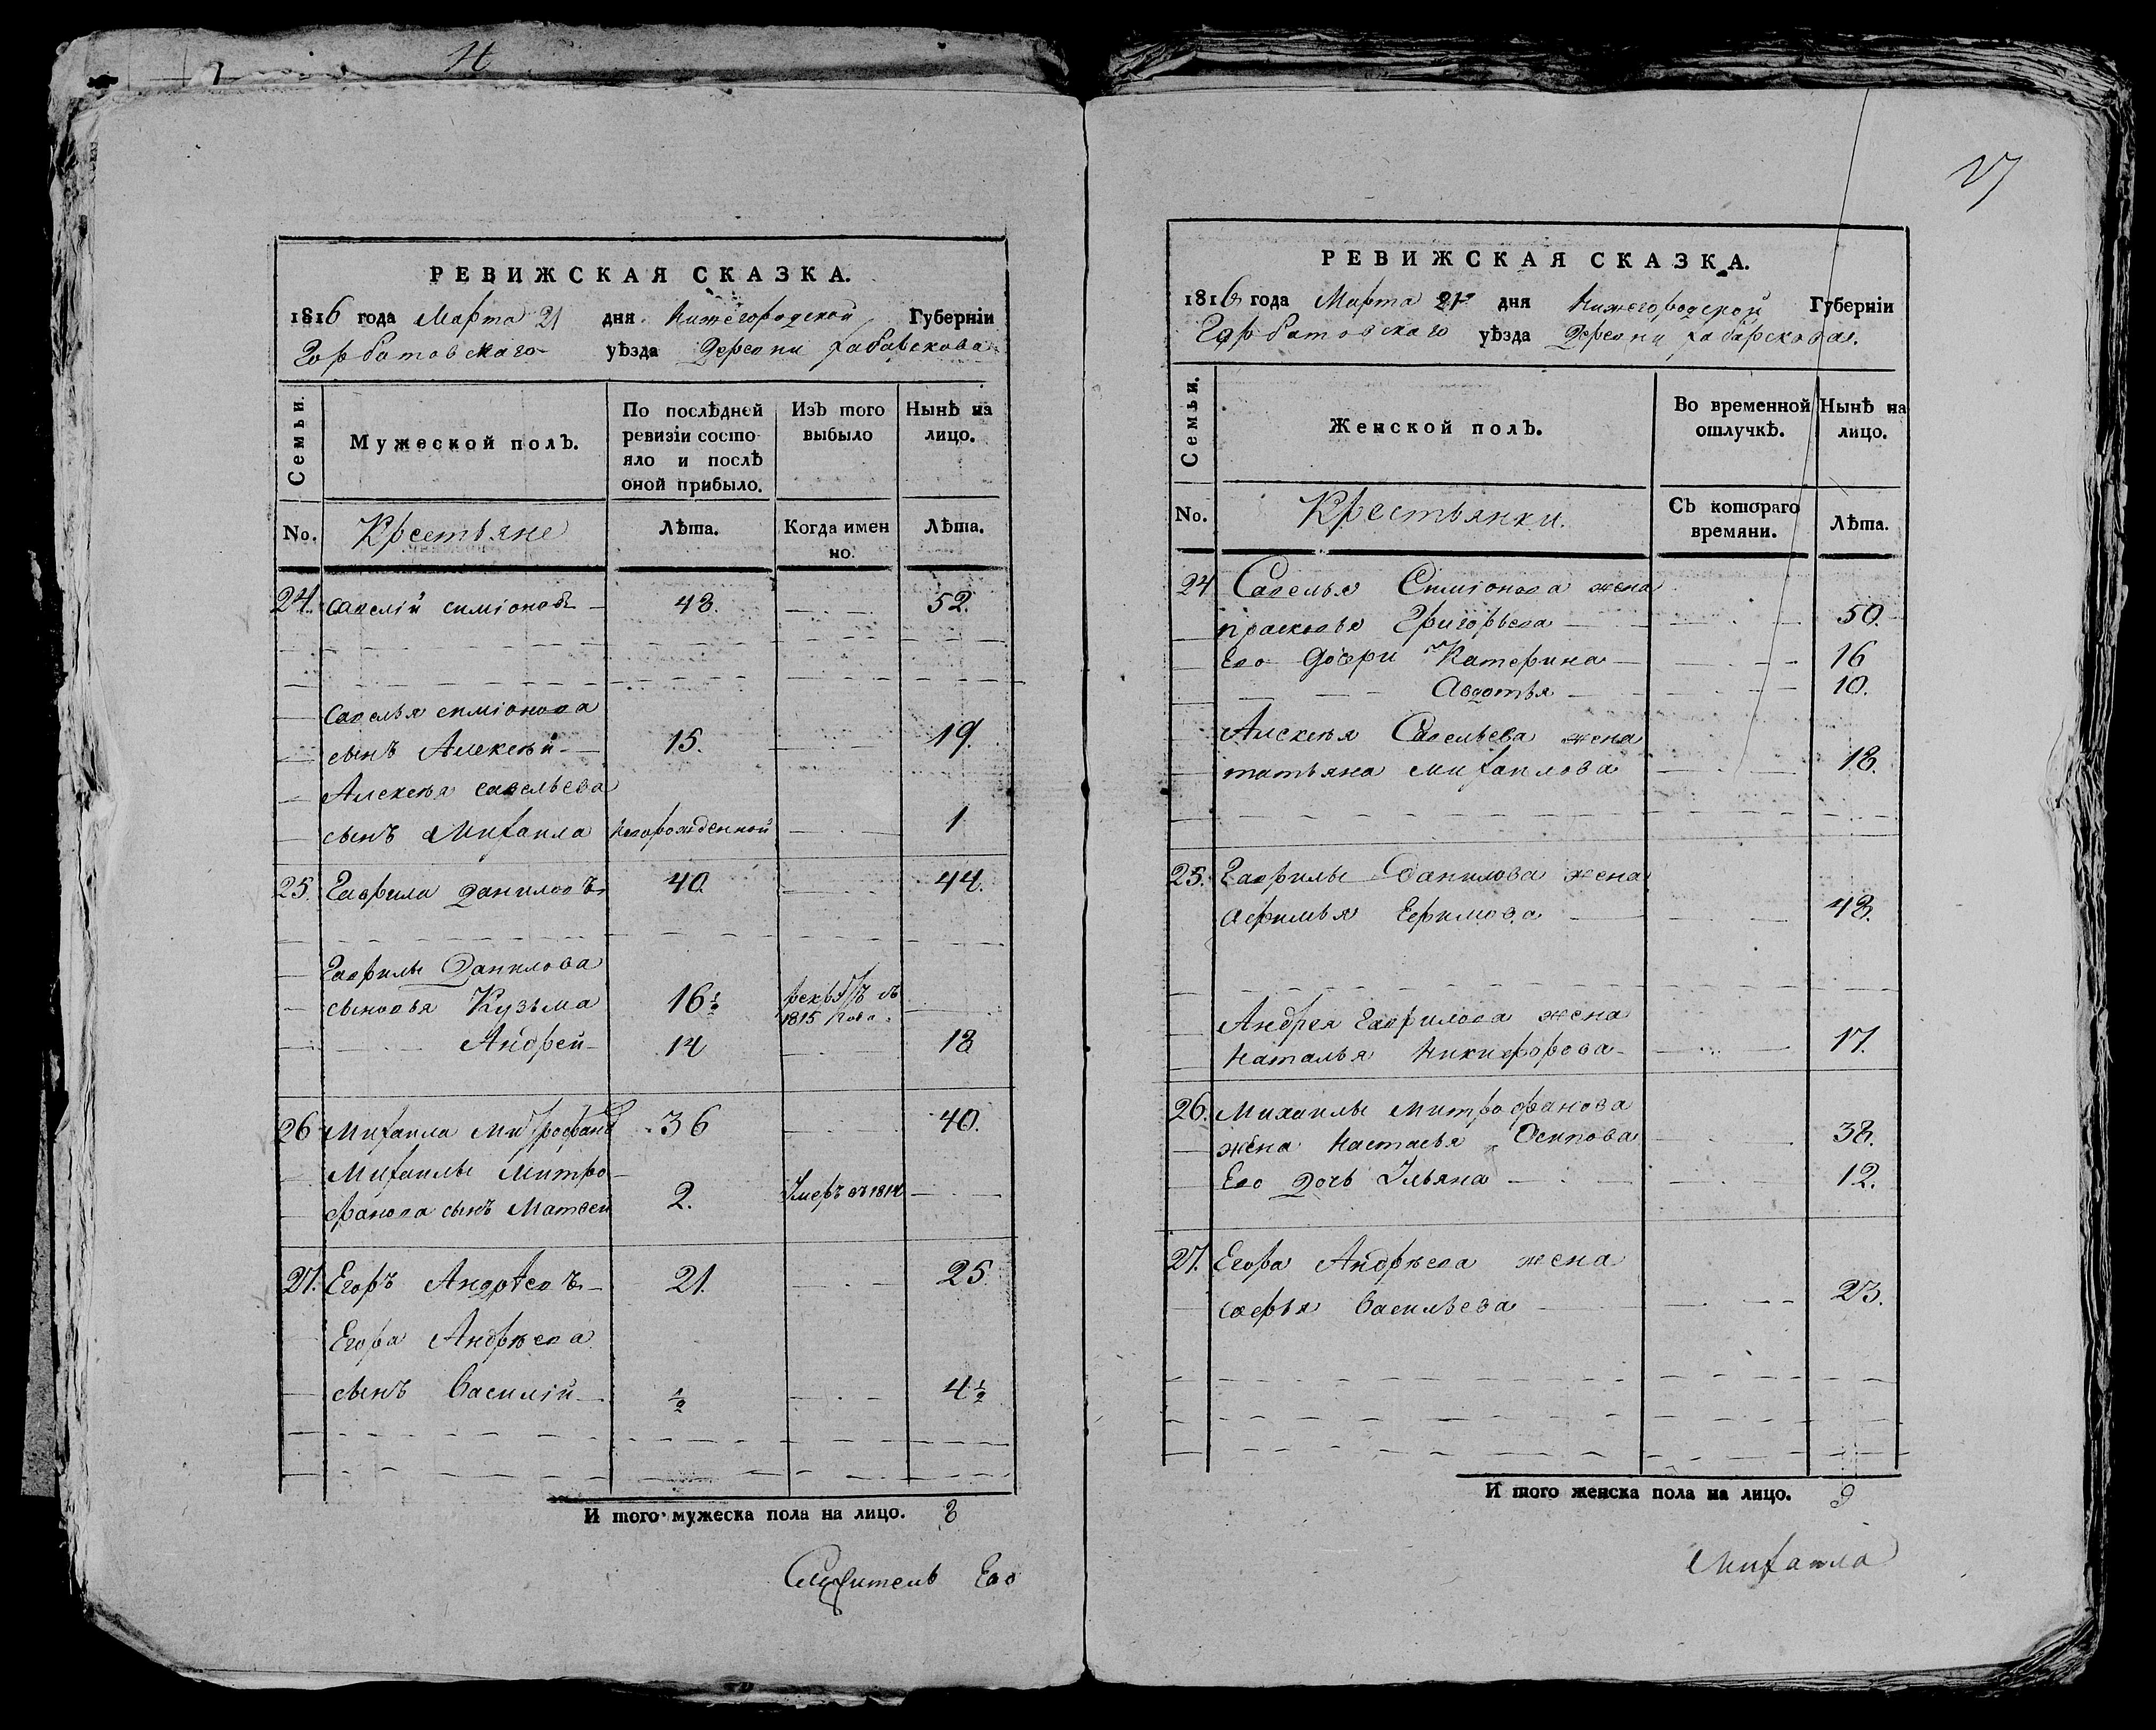 27
РЕВИЖСКАЯ СКАЗКА.
1816 года Марта 21 дня Нижегородской Губерніи
Горбатовскаго уѣзда Деревни Хабарскова
Семьи.
Мужеской полъ.
По послѣдней ревизіи состо-
яло и послѣ
оной прибыло.
Изъ того выбыло
Нынѣ на лицо.
No. Крестьяне Лѣта. Когда имен но. Лѣта.
24. Савелій Симіоновъ 48. 52.
Савелья Симіонова
сынъ Алексѣй 15. 19.
Алексѣя Савельева
сынъ Михаила новорожденной 1
25. Гаврила Даниловъ 40. 44.
Гаврилы Данилова
сыновья Кузьма 16½ 1815 года
Андрей 14 18
26 Михаила Митрофанов 36 40.
Михаилы Митро-
фанова сынъ Матвей 2. Умеръ въ 1814
27. Егоръ Андрѣевъ 21. 25.
Егора Андрѣева
сынъ Василій ½ 4½
И того мужеска пола на лицо. 8
Его
РЕВИЖСКАЯ СКАЗКА.
1816 года Марта 21 дня Нижегородской Губерніи
Горбатовскаго уѣзда Деревни Хабарскова.
Семьи.
Женской полъ.
Во временной отлучкѣ.
Нынѣ на лицо.
No. Крестьянки. Съ котораго времяни. Лѣта.
24 Савелья Симіонова жена
прасковья Григорьева 50.
Ево дочери Катерина 16
Авдотья 10.
Алексѣя Савельева жена
татьяна михаилова 18.
25. Гаврилы Данилова жена
Афимья Ефимова 48.
Андрея Гаврилова жена
Наталья Никифорова 17.
26. Михаилы Митрофанова
жена Настасья Осипова 38.
Ево дочь Ульяна 12.
27. Егора Андрѣева жена
софья Васильева 23.
И того женска пола на лицо. 9
Михаила